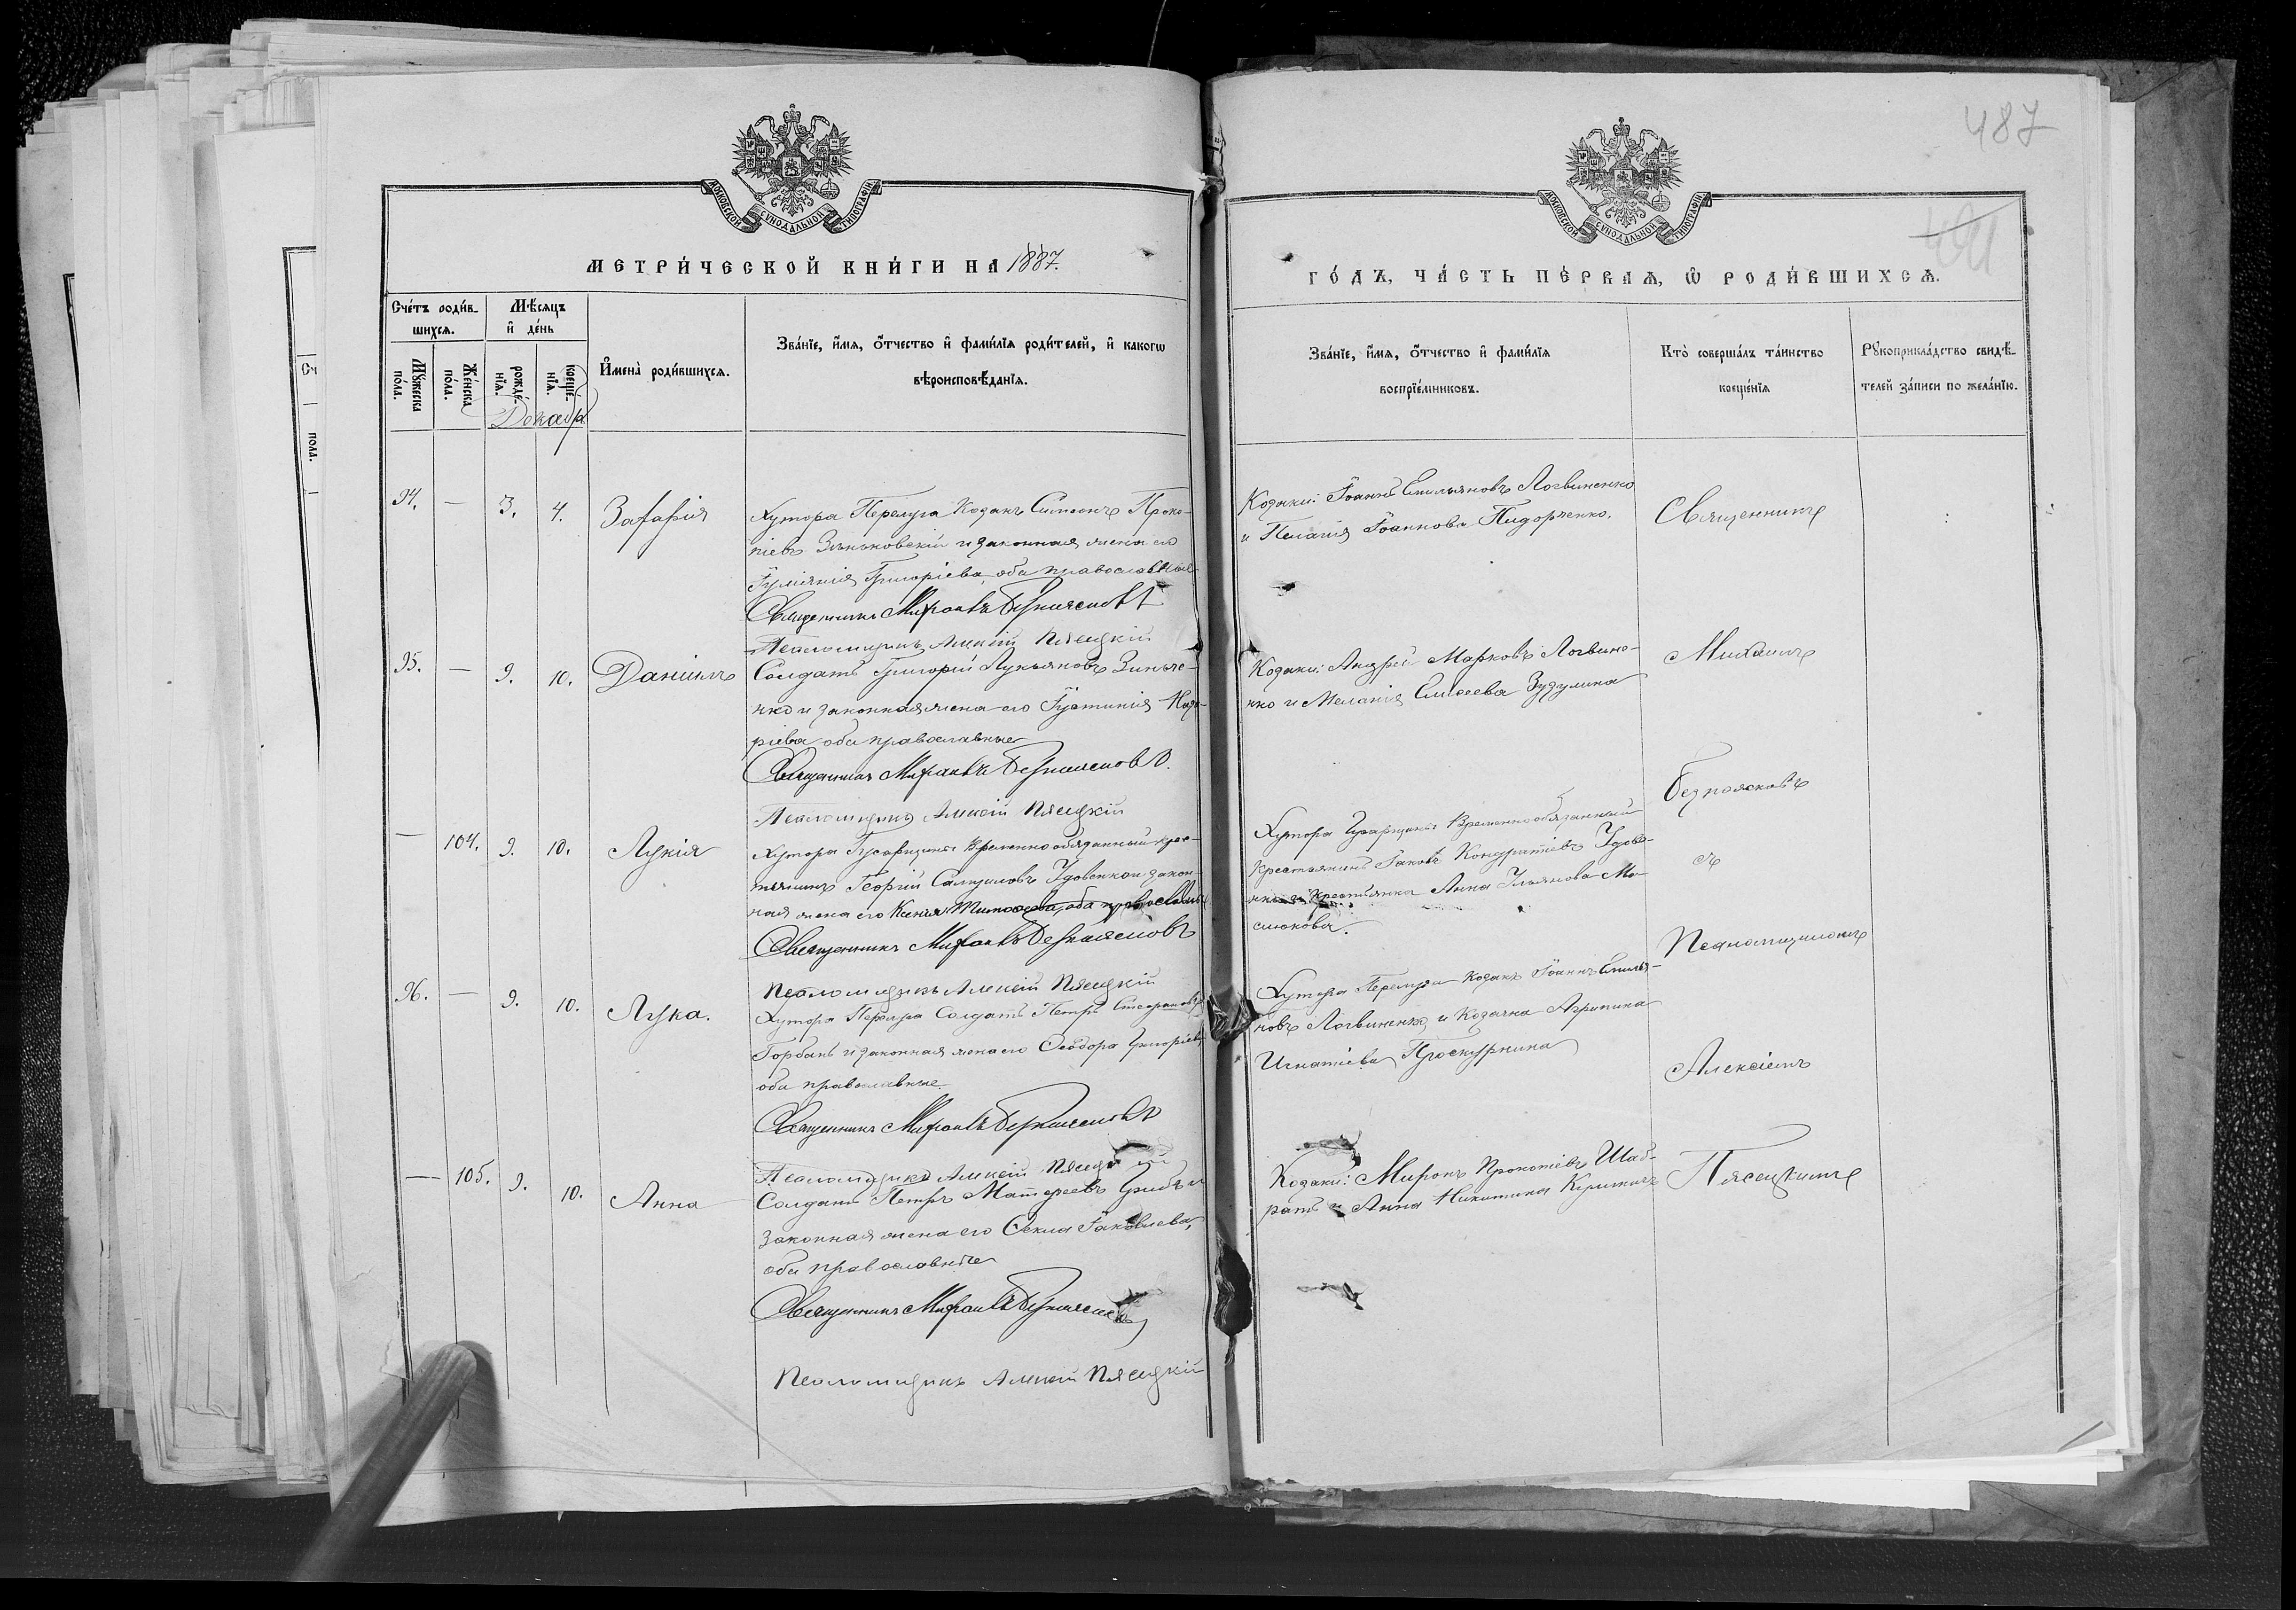 487
МОСКОВСКОЙ СѴНОДАЛЬНОЙ ТИПОГРАФІИ
МОСКОВСКОЙ СѴНОДАЛЬНОЙ ТИПОГРАФІИ
МЕТРИ́ЧЕСКОЙ КНИ́ГИ НА 1887.
ГО́ДЪ, ЧА́СТЬ ПЕ́РВАѦ, Ѡ҆ РОДИ́ВШИХСѦ.
Сче́тъ роди́в-
шихсѧ.
Мꙋ́жеска по́ла.
Же́нска по́ла.
Мѣ́сѧцъ
и҆ де́нь
рожде́-нїѧ.
креще́-нїѧ.
Декабр
И҆мена̀ роди́вшихсѧ.
Зва́нїе, и҆́мѧ, ѻ҆́тчество и҆ фами́лїѧ роди́телей, и҆ како́гѡ
вѣроисповѣ́данїѧ.
Зва́нїе, и҆́мѧ, ѻ҆́тчество и҆ фами́лїѧ
воспрїе́мниковъ.
Кто̀ соверша́лъ та́инство
креще́нїѧ
Рꙋкоприкла́дство свидѣ́-
телей за́писи по жела́нїю.
94. — 3. 4. Захарія
Хутора Перелуга Козакъ Симеонъ Проко-
піевъ Зиньковскій и законная жена его
Іуліянія Григоріева, оба православные
Священникъ Михаилъ Безпоясковъ
Псаломщикъ Алексій Пясецкій
Козаки: Іоаннъ Емильяновъ Логвиненко
и Пелагія Іоаннова Пидорченко.
Священникъ
95. — 9. 10. Даніилъ
Солдатъ Григорій Лукьяновъ Зинче-
нко и законная жена его Іустинія Наза-
ріева оба православные
Священникъ Михаилъ Безпоясковъ.
Псаломщикъ Алексій Пясецкій
Козаки: Андрей Марковъ Логвине-
нко и Меланія Елисеева Зузулина
Михаилъ
Безпоясковъ
— 104. 9. 10. Лукія
Хутора Гусарщины Временнообязанный крес-
тьянинъ Георгій Самуиловъ Удовенко и закон-
ная жена его Ксенія Тимофеева, оба православные
Священникъ Михаилъ Безпоясковъ
Псаломщикъ Алексій Пясецкій
Хутора Гусарщины Временнообязанный
крестьянинъ Іаковъ Кондратіевъ Удове-
нко и крестьянка Анна Ульянова Мо-
сюкова.
съ
Псаломщикомъ
96. — 9. 10. Лука.
Хутора Перелуга Солдатъ Петръ Стефановъ
Горбань и законная жена его Феодора Григоріева
оба православные.
Священникъ Михаилъ Безпоясковъ
Псаломщикъ Алексій Пясецкій
Хутора Перелуга Козакъ Іоаннъ Емилья-
новъ Логвиненко и Козачка Агрипина
Игнатіева Проскурнина
Алексіемъ
— 105. 9. 10. Анна
Солдатъ Петръ Матфеевъ и
законная жена его Фекла Іаковлева,
оба православные
Священникъ Михаилъ Безпоясковъ
Псаломщикъ Алексій Пясецкій
Козаки: Миронъ Прокопіевъ Шаб-
ратъ и Анна Никитина
Пясецкимъ